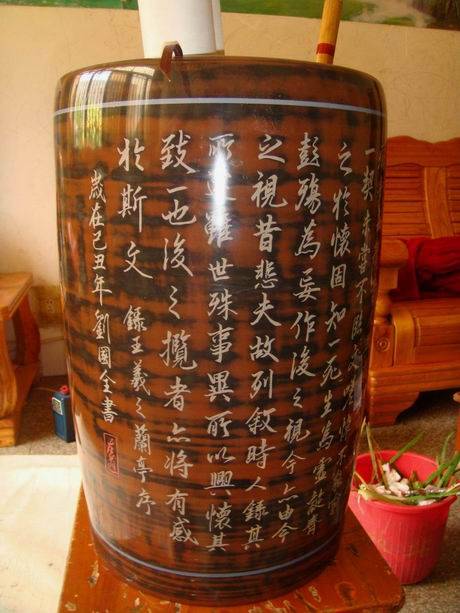 一契未嘗不臨文嗟悼不
之於懷固知一死生為虛誕齊
彭殤為妄作後之視今亦由今
之視昔悲夫故列敘時人錄其
所述雖世殊事異所以興懷其
致一也後之攬者亦將有感
於斯文 錄王羲之蘭亭序
歲在己丑年劉國全書